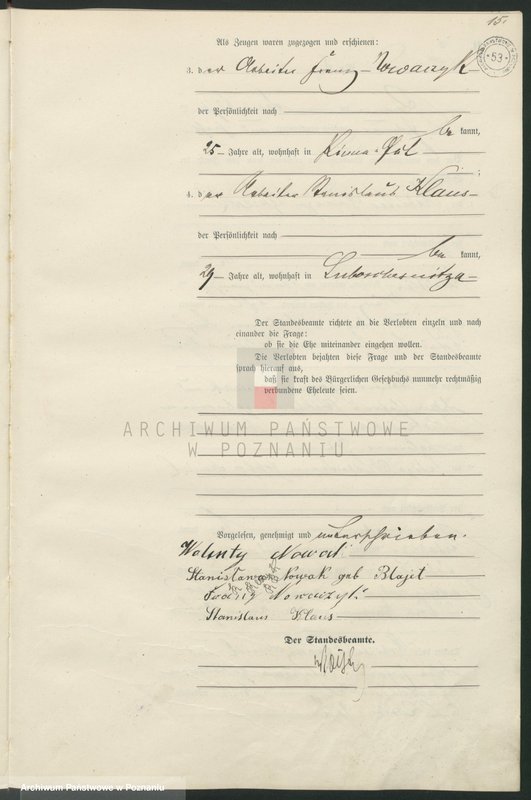 15.
53
Als Zeugen waren zugezogen und erschienen:
3. der Arbeiter Franz Nowaczyk
der Persönlichkeit nach
be kannt,
25 Jahre alt, wohnhaft in
4. der Arbeiter Stanislaus Klaus
der Persönlichkeit nach
be kannt,
29 Jahre alt, wohnhaft in
Der Standesbeamte richtete an die Verlobten einzeln und nach
einander die Frage:
ob sie die Ehe miteinander eingehen wollen.
Die Verlobten bejahten diese Frage und der Standesbeamte
sprach hierauf aus,
daß sie kraft des Bürgerlichen Gesetzbuchs nunmehr rechtmäßig
verbundene Eheleute seien.
ARCHIWUM PAŃSTWOWE
W POZNANIU
Vorgelesen, genehmigt und unterschrieben.
Walenty Nowak
Stanisława Nowak geb Blajet
Nowaczyk
Stanislaus Klaus
Der Standesbeamte.
Archiwum Państwowe w Poznaniu